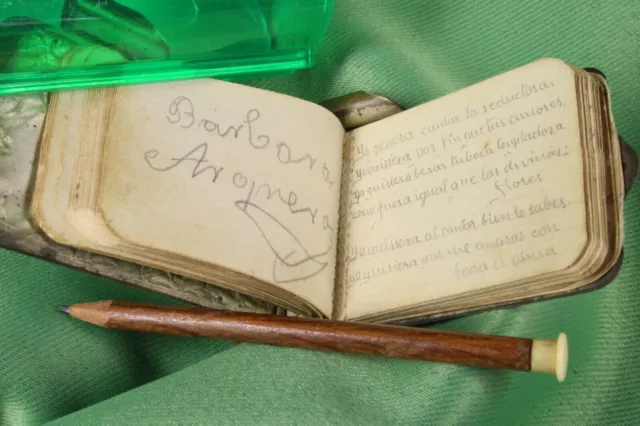 Bárbara
Arquera
Yo quiera cantar la seductora,
yo quisiera por tin que tris amores.
Yo quisiera besar tu boca
como fuera igual que las divinas
flores
Yo quisiera al cantar bien lo sabes
yo quisiera que me amaras con
toda el